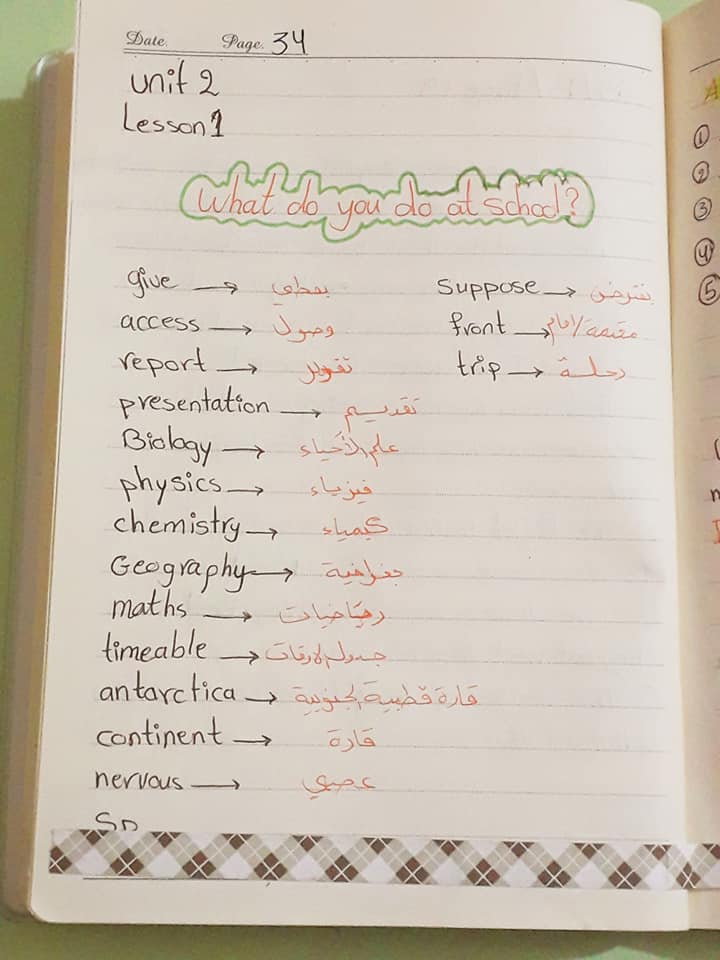 Date. Page. 34
Unit 2
Lesson 1
What do you do at school?
give → يعطي
access → وصول
report → تقرير
presentation → تقديم
Biology → علم الأحياء
physics → فيزياء
chemistry → كيمياء
Geography → جغرافية
maths → رياضيات
timeable → جدول الاوقات
antarctica → قارة قطبية الجنوبية
continent → قارة
nervous → عصبي
Suppose → يفترض
front → مقدمة/امام
trip → رحلة
①
②
③
④
⑤